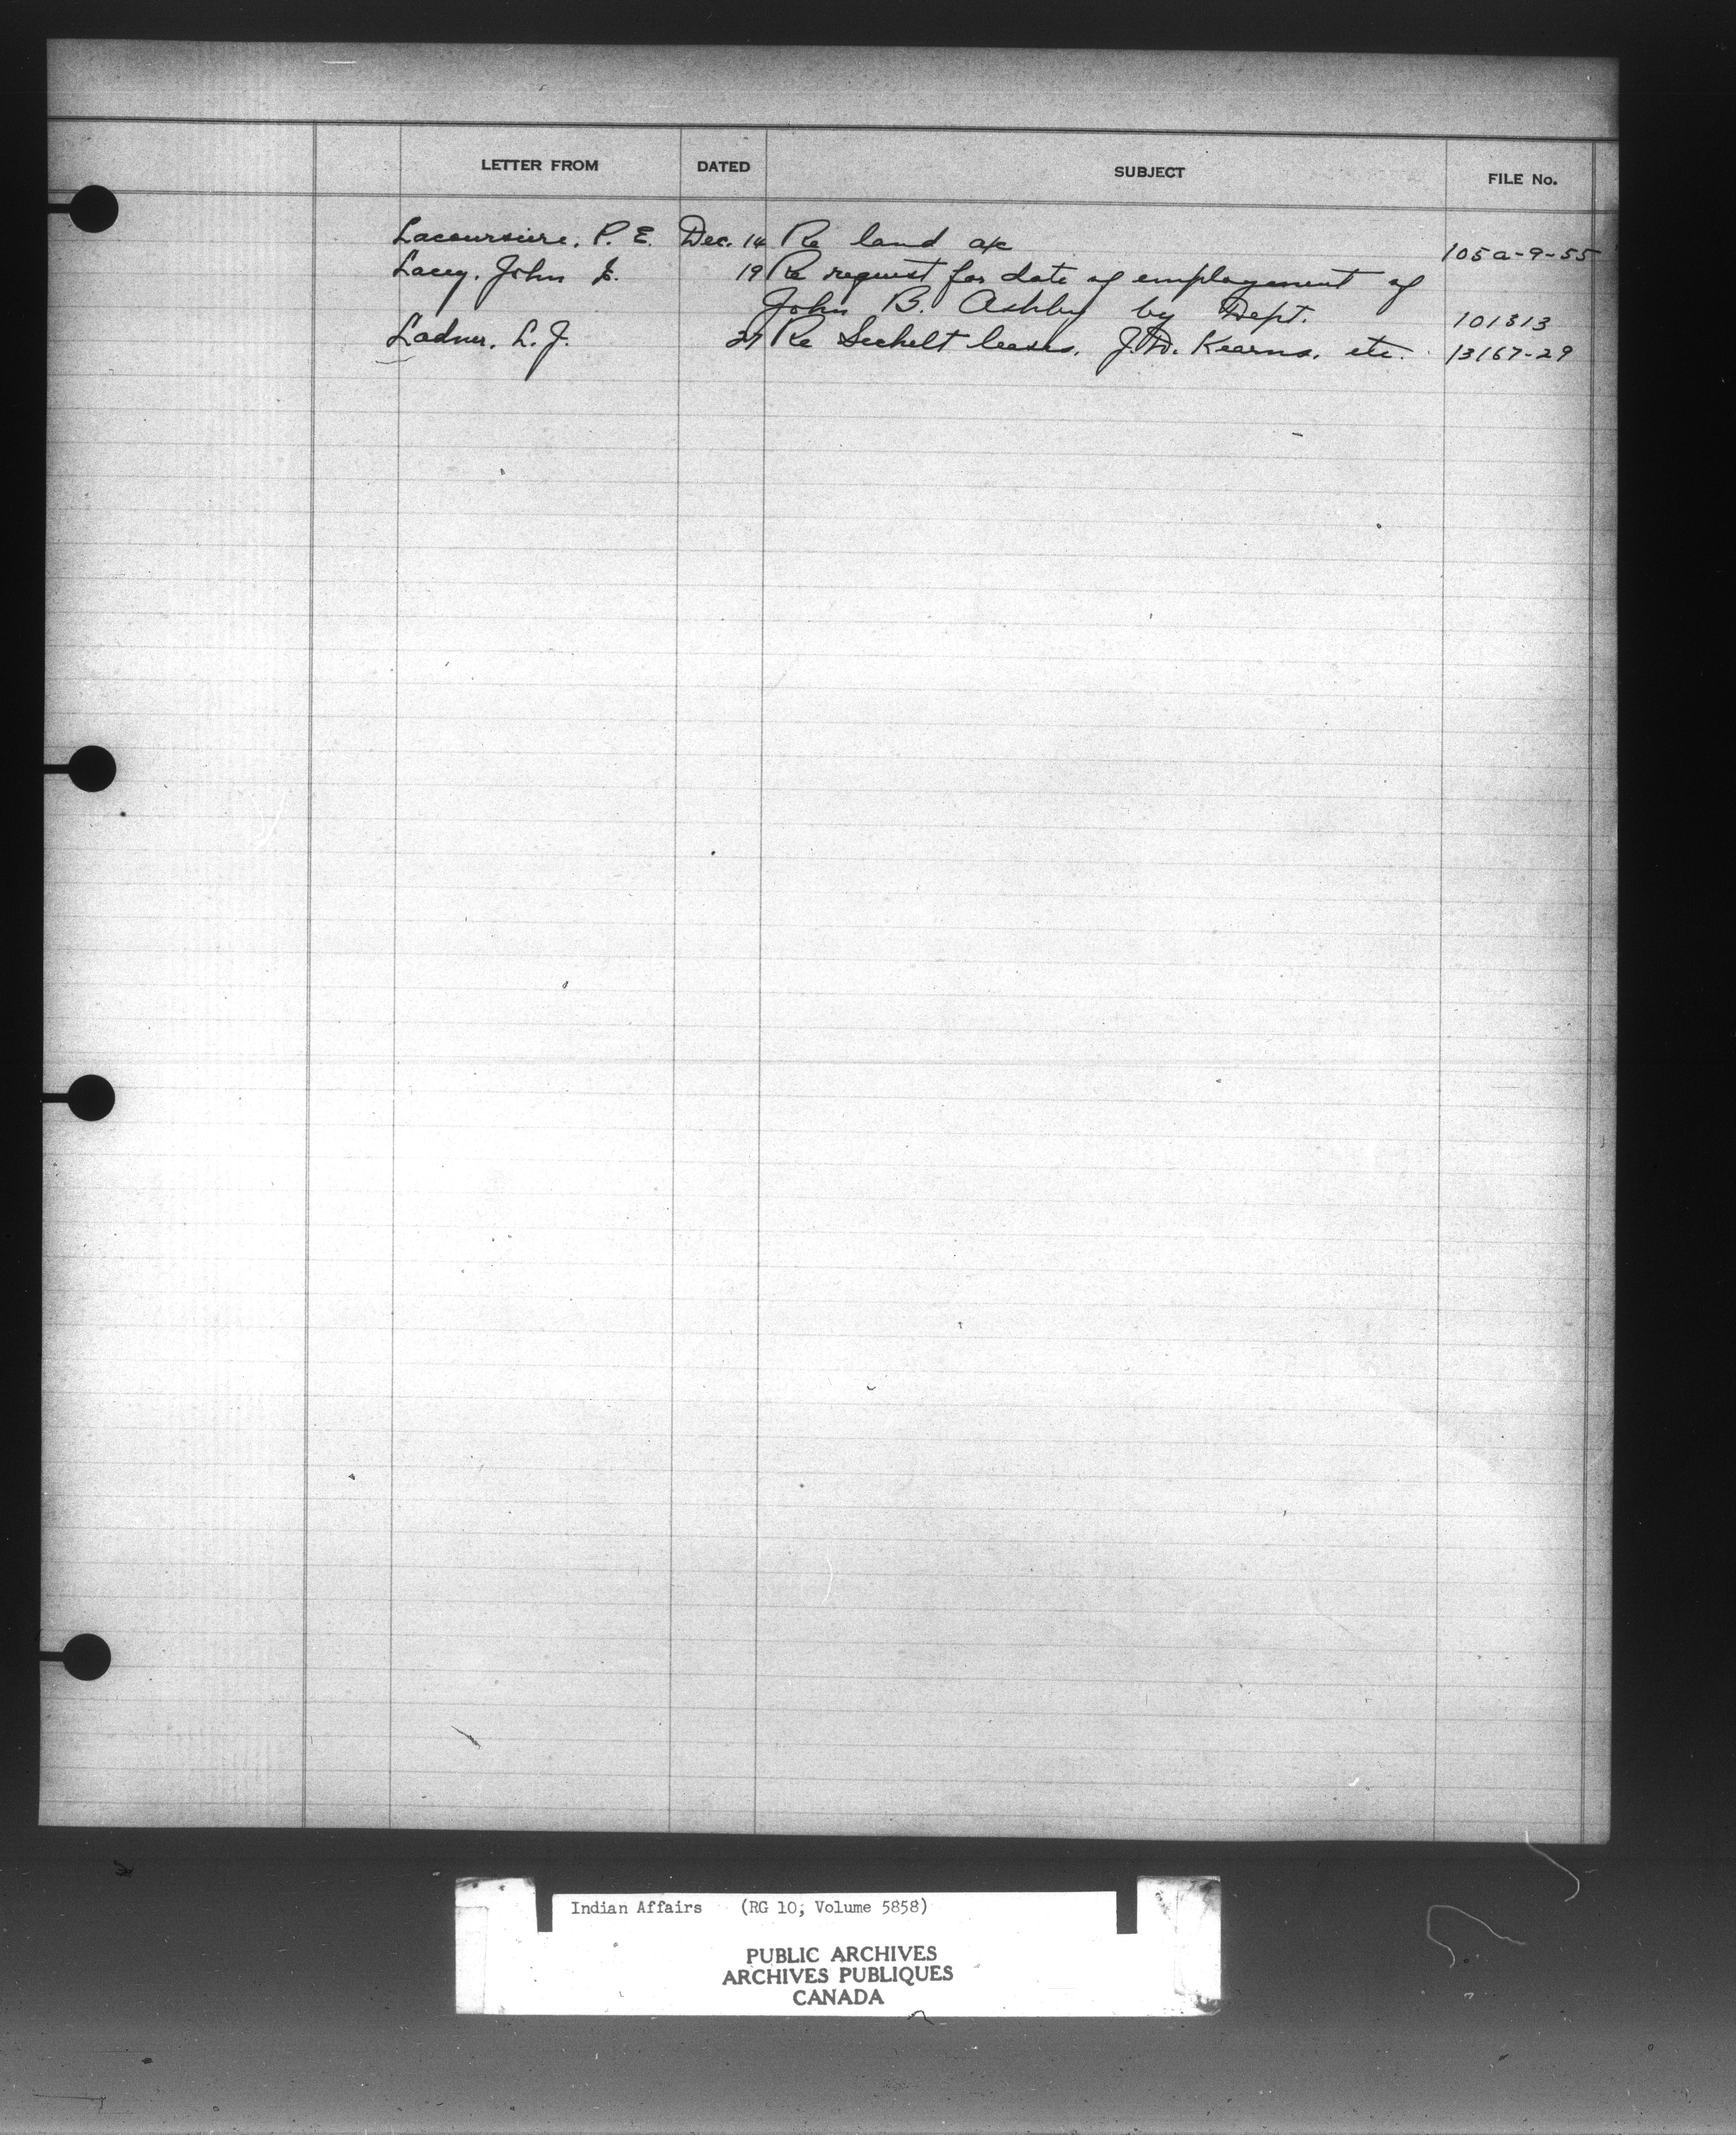 LETTER FROM DATED SUBJECT FILE No.
Lacoursiere, P. E. Dec. 14 Re land a/c 105a-9-55
Lacey, John E. 19 Re request for date of employement of
John B. Ashby by Dept. 101313
Ladner, L. J. 27 Re Sechelt leases, J.D. Kearns, etc. 13167-29
Indian Affairs (RG 10, Volume 5858)
PUBLIC ARCHIVES
ARCHIVES PUBLIQUES
CANADA